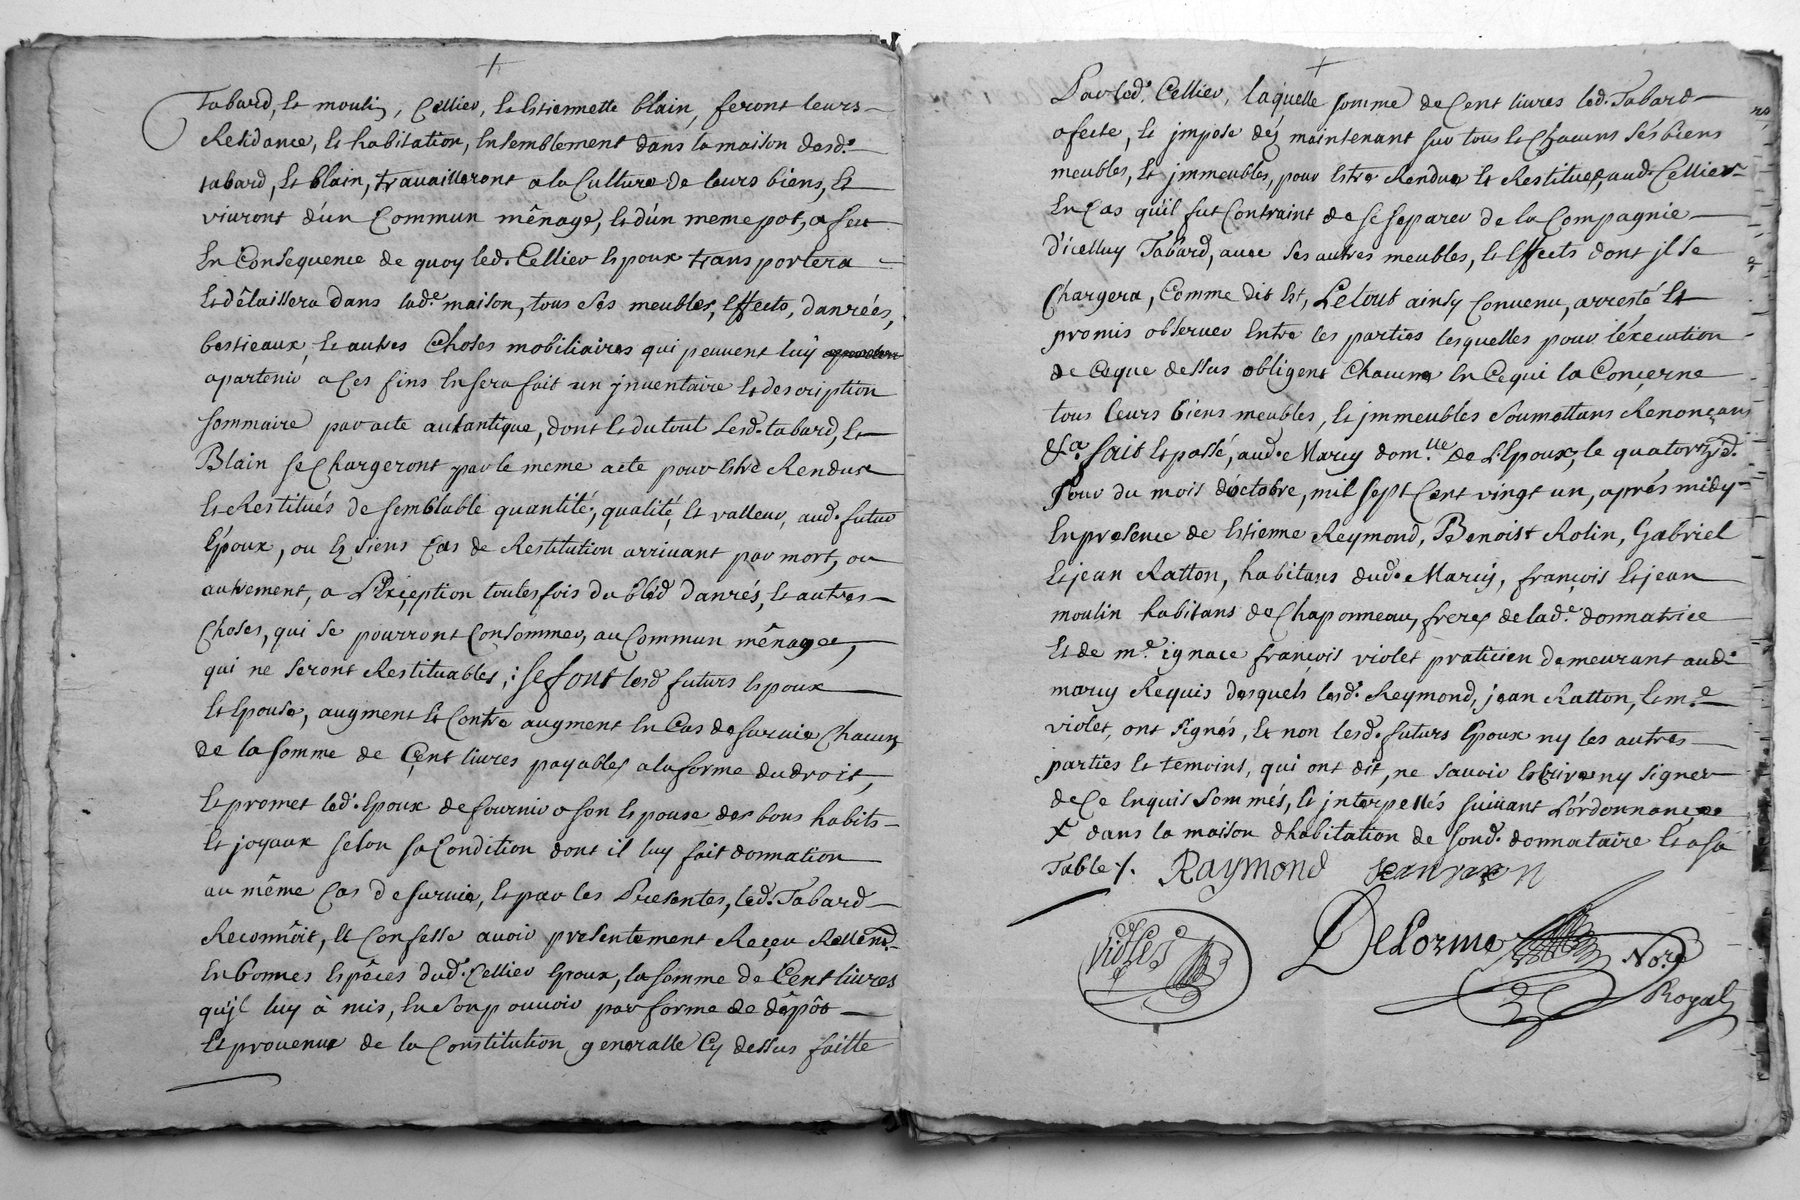 Tabard, et moulin, Cellier, et Estiennette blain, feront leurs
Residance, et habitation, Ensemblement dans la maison desd.
tabard, et blain, travailleront a la Culture de leurs biens, et
vivront d'un Commun mênage, et d'un meme pot, a feu
En Consequence de quoy led. Cellier Epoux transportera
et dêlaissera dans lad.e maison, tous ses meubles, Effects, danrées,
bestieaux, et autres Choses mobiliaires qui peuvent luy
apartenir a Ces fins En sera fait un jnventaire et description
sommaire par acte autantique, dont et du tout Lesd. tabard, et
Blain se Chargeront par le meme acte pour Estre Rendux
et Restitués de semblable quantité, qualité, et valleur, aud. futur
Epoux, ou Es siens Cas de Restitution arrivant par mort, ou
autrement, a L'Exception toutesfois du bled danrés, et autres
Choses, qui se pourront Consommer, au Commun mênage,
qui ne seront Restituables; se font lesd futurs Epoux
et Epouse, augment et Contre augment En Cas de survie Chacun
de la somme de Cent livres payables a la forme du droit,
et promet led. Epoux de fournir a son Epouse des bons habits
et joyaux selon sa Condition dont il luy fait donnation
au même Cas de survie, et par les Presentes, led. Tabard
Reconnoit, et Confesse avoir presentement Reçeu Reellem.
En bonnes Espêces dud. Cellier Epoux, la somme de Cent livres
qu'jl luy à mis, En son pouvoir par forme de dêpôt
et provenue de la Constitution generalle Cy dessus faitte
Par led. Cellier, laquelle somme de Cent livres led. Tabard
afecte, et jmpose déz maintenant sur tous et Chacuns sés biens
meubles, et jmmeubles, pour Estre Rendue et Restituee, aud. Cellier
En Cas qu'il fut Contraint de se separer de la Compagnie
d'icelluy Tabard, avec ses autres meubles, et Effects dont jl se
Chargera, Comme dit Est, Le tout ainsy Convenu, arresté et
promis observer Entre les parties lesquelles pour l'éxecution
de Ceque dessus obligent Chacune En Cequi la Conçerne
tous leurs biens meubles, et jmmeubles soumettans Renonçans
&a. fait et passé, aud. Marcy dom.lle de L'Epoux, le quatorz.
Jour du mois d'octobre, mil sept Cent vingt un, aprés midy
En presence de Estienne Reymond, Benoist Rolin, Gabriel
et jean Ratton, habitans dud. Marcy, françois et jean
moulin habitans de Chaponneau, freres de lad.e donnatrice
et de m.e ignace françois violet praticien demeurant aud.
marcy Requis desquels lesd. Reymond, jean Ratton, et m.e
violet, ont signés, et non lesd. futurs Epoux ny les autres
parties et temoins, qui ont dit, ne savoir Escrire ny signer
de Ce Enquis sommés, et jnterpellés suivant L'ordonnance
X dans la maison dhabitation de sond. donnataire et a sa
Table /. Raymond
violet
DeLorme
No.re
Royal